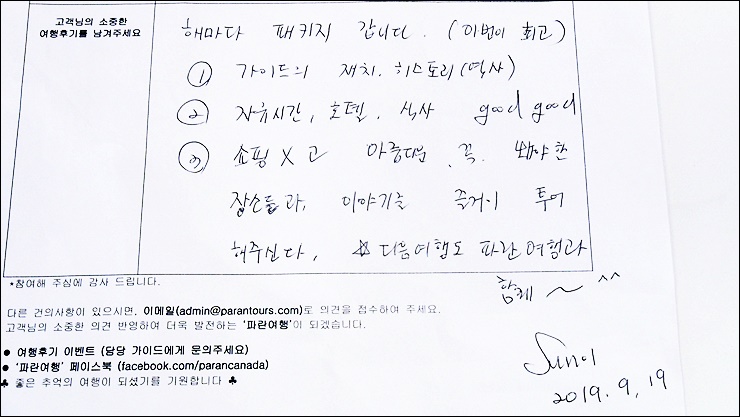 고객님의 소중한
여행후기를 남겨주세요
해마다 패키지 갑니다. (이번이 최고)
① 가이드의 재치. 히스토리(역사)
② 자유시간, 호텔. 식사 good good
③ 쇼핑 X 고 아름다운 꼭 봐야한
장소들과, 이야기들 즐거이 투어
해주신다, ☆ 다음여행도 파란여행과
함께 ~ ^^
*참여해 주심에 감사 드립니다.
다른 건의사항이 있으시면, 이메일(admin@parantours.com)로 의견을 접수하여 주세요.
고객님의 소중한 의견 반영하여 더욱 발전하는 '파란여행'이 되겠습니다.
● 여행후기 이벤트 (담당 가이드에게 문의주세요)
● '파란여행' 페이스북 (facebook.com/parancanada)
♣ 좋은 추억의 여행이 되셨기를 기원합니다 ♣
2019. 9, 19